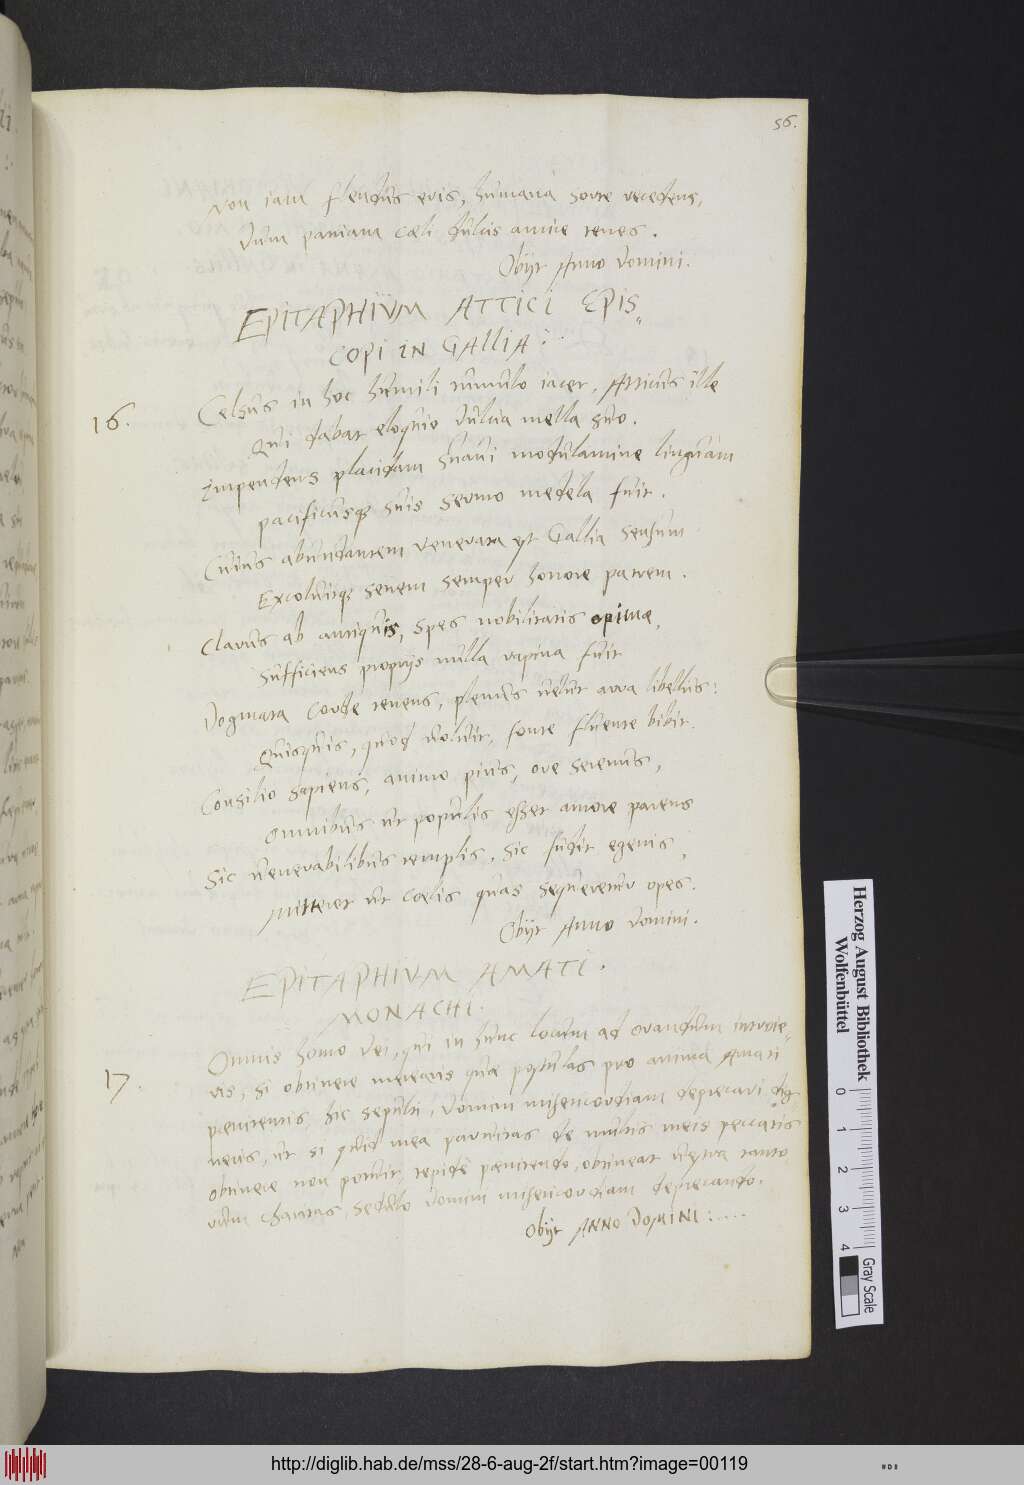 56.
Non iam flendus eris, humana sorte recedens,
Dum patriam cæli dulcis amice tenes.
Obijt Anno Domini.
EPITAPHIUM ATTICI EPIS„
COPI IN GALLIA:
16. Celsus in hoc humili tumulo iacet, Atticus ille
Qui dabat eloquio dulcia mella suo.
Impendens placidam suavi modulamine linguam
pacificusq; suis sermo medela fuit.
Cuius abundantem venerata est Gallia sensum
Excoluitq; senem semper honore patrem.
Clarus ab antiquis, spes nobilitatis opimæ,
Sufficiens proprijs nulla rapina fuit
Dogmata corde tenens, plenus velut arca libellis:
Quisquis, quod voluit, fonte fluente bibit.
Consilio sapiens, animo pius, ore serenus,
Omnibus ut populis esset amore parens
Sic venerabilibus templis, sic fudit egenis,
Mitteret ut coelis quas sequeretur opes.
Obijt Anno Domini.
EPITAPHIVM AMATI
MONACHI.
17. Omnis homo Dei, qui in hunc locum ad orandum introie„
ris, si obtinere merearis quæ postulas pro anima Amati
poenitentis, hic sepulti, Domini misericordiam deprecari dig„
neris, ut si quid mea parvitas de multis meis peccatis
obtinere non potuit, tepide poenitendo, obtineat vestra tanto
rum charitas, sedulo Domini misericordiam deprecando.
Obijt ANNO DOMINI:....
Herzog August Bibliothek
Wolfenbüttel
0 1 2 3 4
Gray Scale
http://diglib.hab.de/mss/28-6-aug-2f/start.htm?image=00119